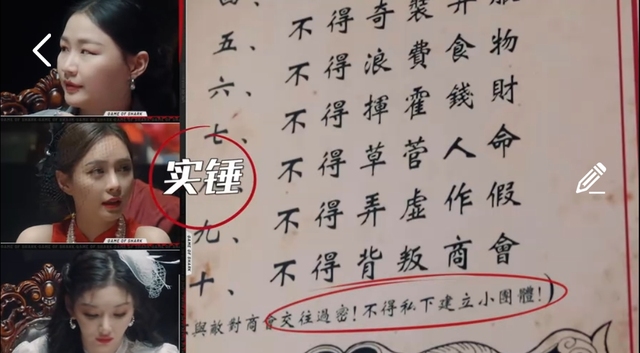 五、不得浪費食物
六、不得揮霍錢財
七、不得草菅人命
九、不得弄虛作假
十、不得背叛商會
與敵對商會交往過密!不得私下建立小團體!)
实锤
GAME OF SHARK
GAME OF SHARK